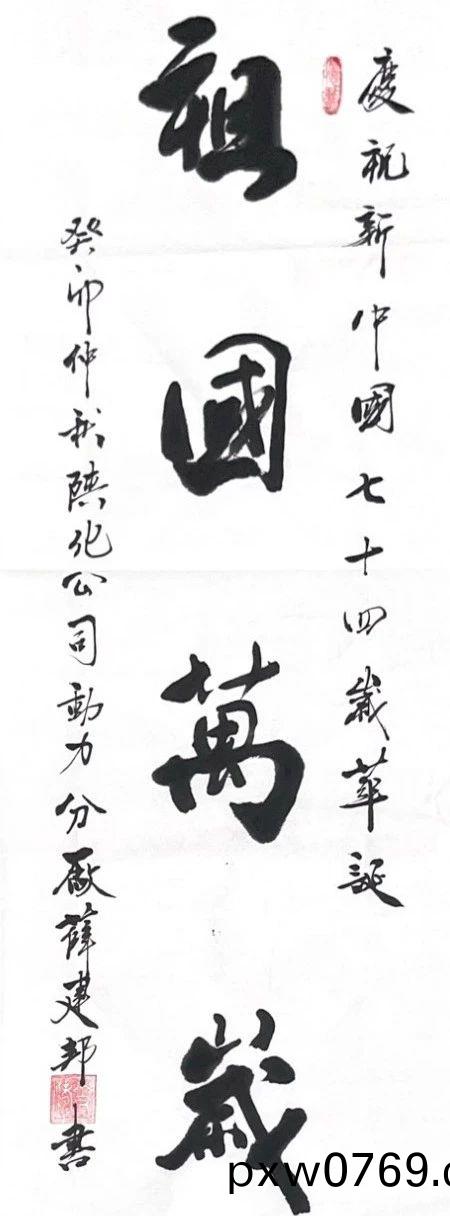 慶祝新中國七十四歲華誕
祖國萬歲
癸卯仲秋陕化公司動力分廠薛建邦書
pxw0769.c